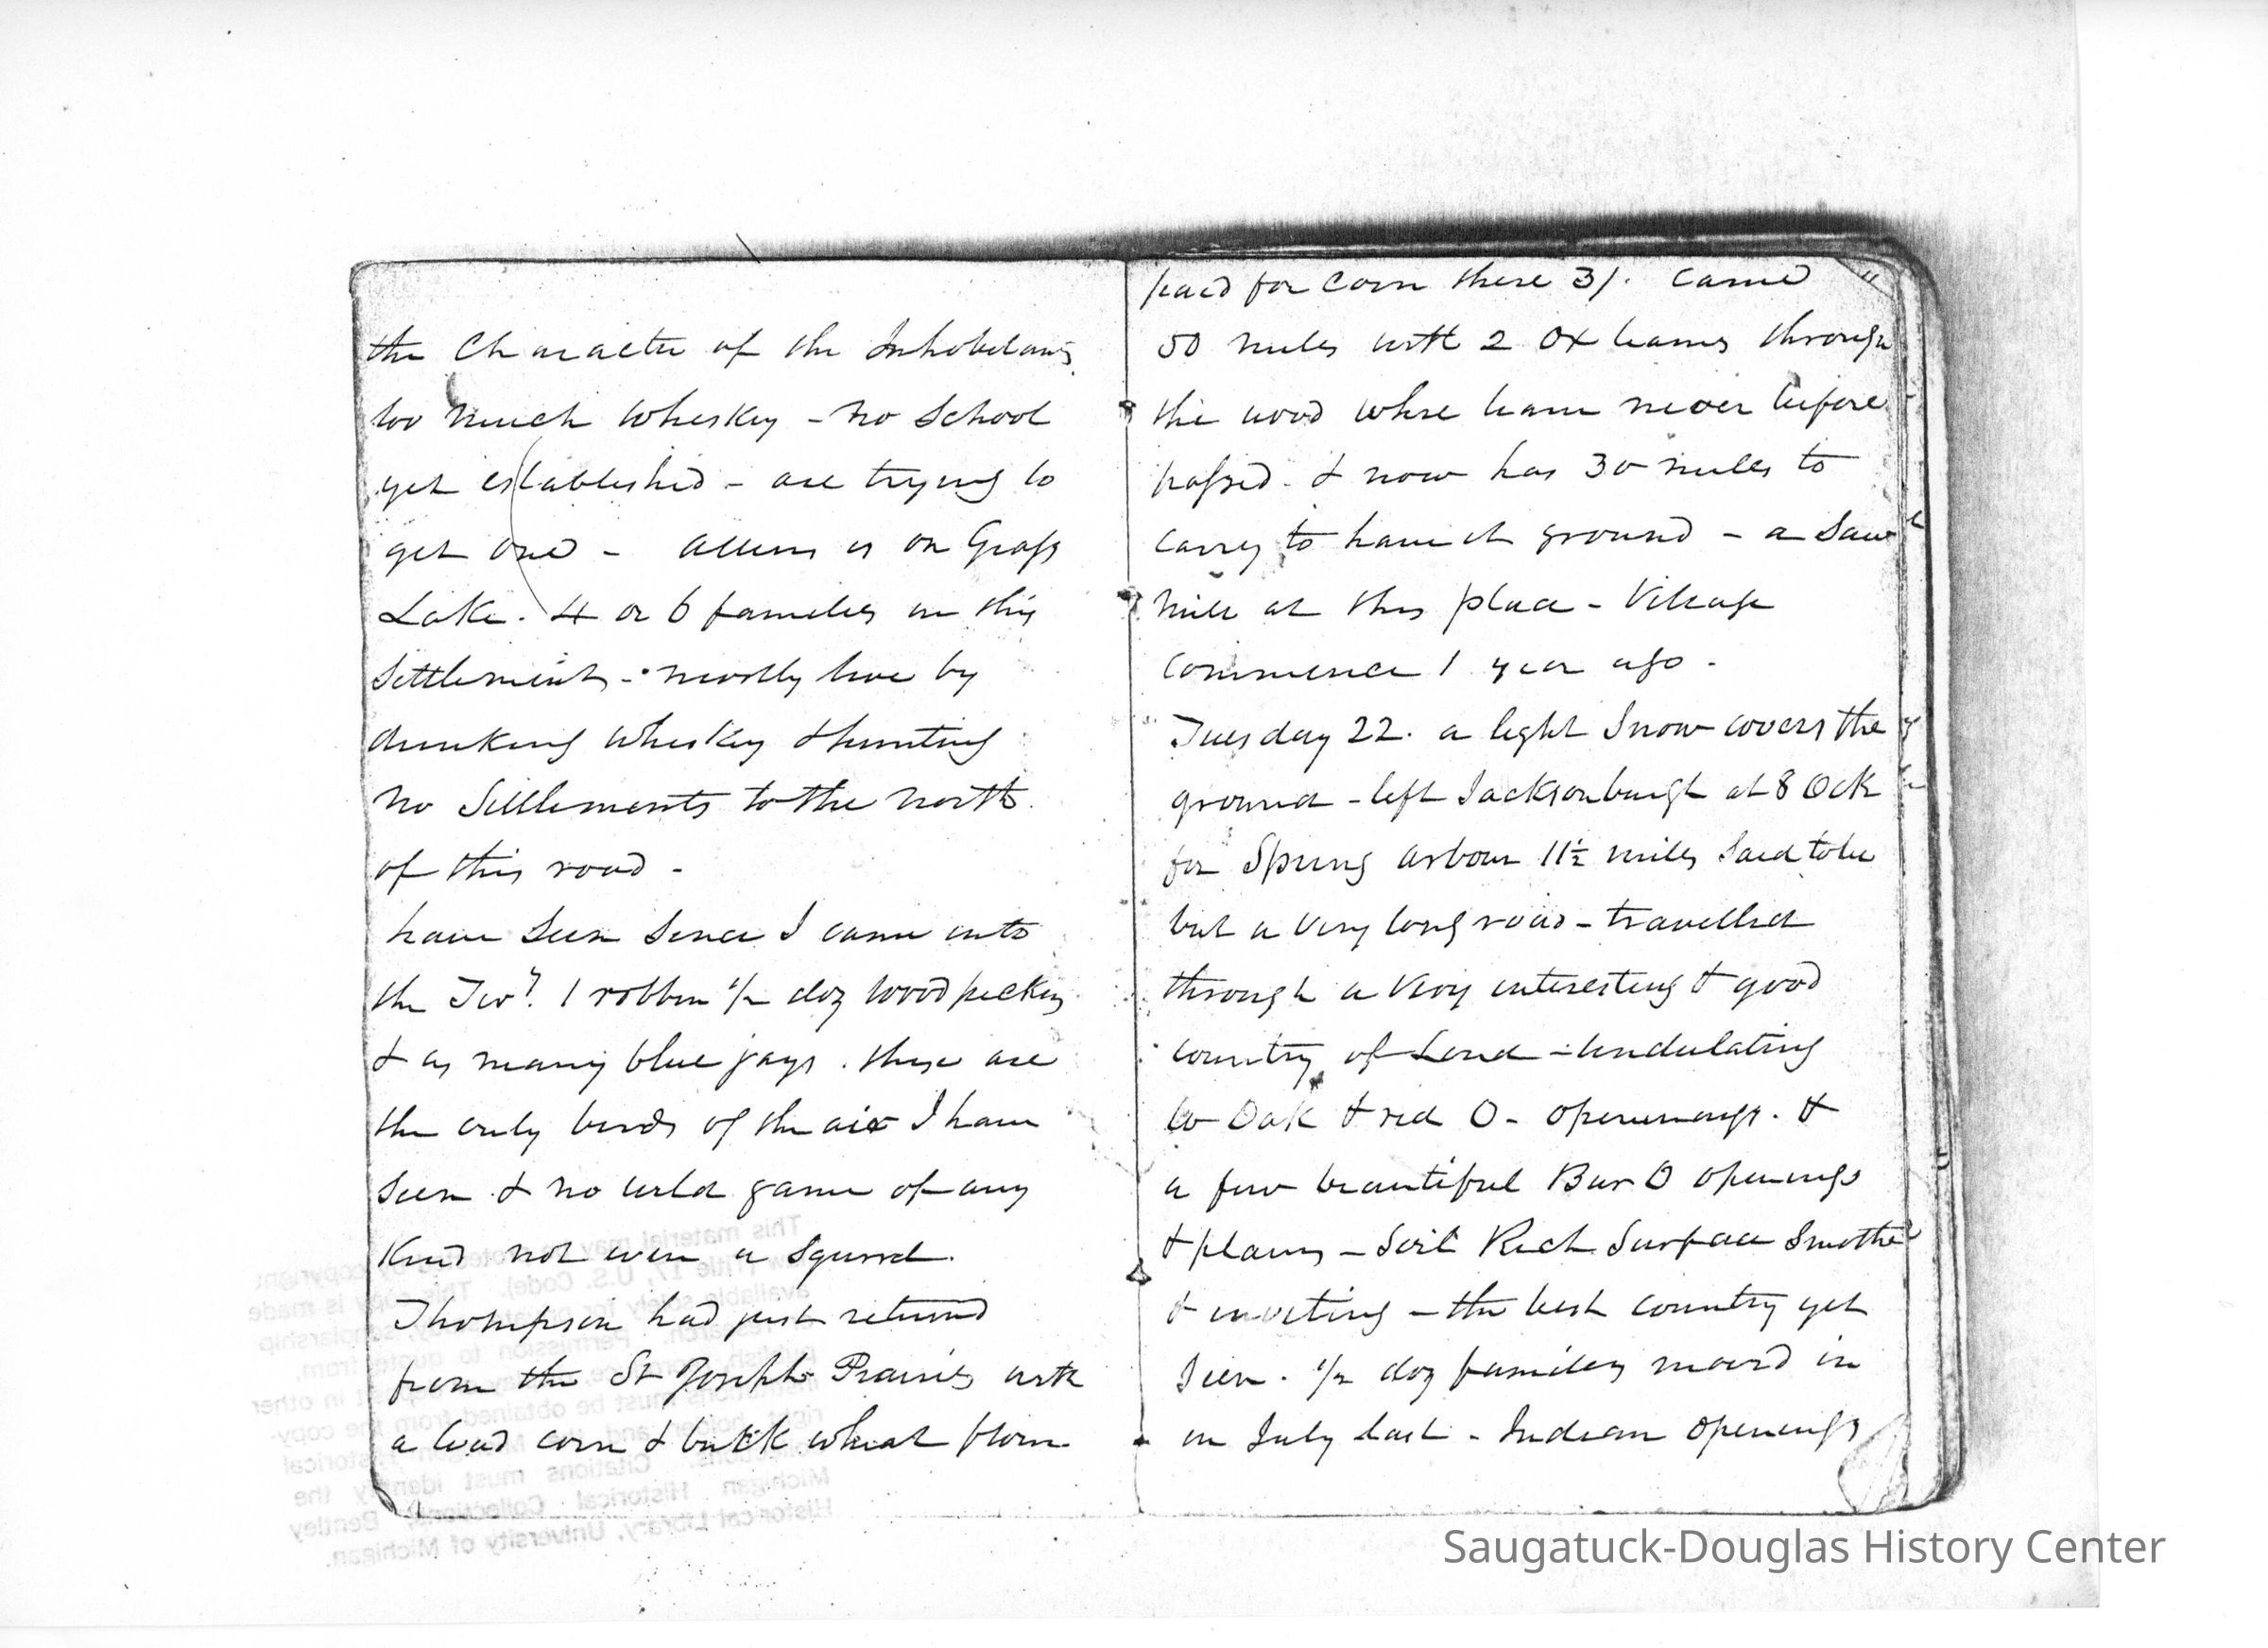 the Character of the Inhabitants
too much Whiskey - no School
yet established - are trying to
get one - Allens is on Grass
Lake. 4 or 6 families in this
Settlement - mostly live by
drinking whiskey & hunting
No Settlements to the North
of this road -
have seen since I came into
the Tery. 1 robbin 1/2 doz wood peckers
& as many blue jays. these are
the only birds of the air I have
seen & no wild game of any
kind not even a Squirrel.
Thompson had just returned
from the St Josephs Prairies with
a load corn & buckwheat
paid for Corn there 3/. Came
50 miles with 2 Ox teams through
the wood where team never before
passed. & now has 30 miles to
carry to have it ground - a Saw
mill at this place - Village
commence 1 year ago.
Tuesday 22. a light Snow covers the
ground - left Jacksonburgh at 8 Ock
for Spring arbour 11½ miles Said to be
but a very long road - travelled
through a very interesting & good
country of Land - undulating
W Oak & red O - openings. &
a few beautiful Bur O openings
& plains - Soil Rich Surface Smothe
& inviting - the best country yet
Seen. 1/2 doz families moved in
in July last - Indian Openings
This material may be protected by copyright
law (Title 17, U.S. Code). This copy is made
available solely for
Permission to quote from
must be obtained from the copy-
right holder and Historical
Collections. Citations must identify the
Michigan Historical Collections, Bentley
Historical Library, University of Michigan.
Saugatuck-Douglas History Center